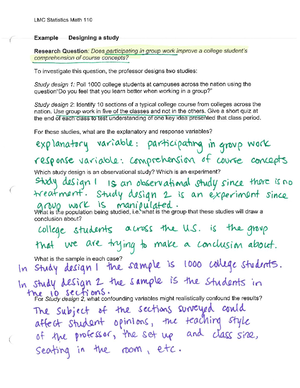 LMC Statistics Math 110
Example Designing a study
Research Question: Does participating in group work improve a college student's
comprehension of course concepts?
To investigate this question, the professor designs two studies:
Study design 1: Poll 1000 college students at campuses across the nation using the
question"Do you feel that you learn better when working in a group?"
Study design 2: Identify 10 sections of a typical college course from colleges across the
nation. Use group work in five of the classes and not in the others. Give a short quiz at
the end of each class to test understanding of one key idea presented that class period.
For these studies, what are the explanatory and response variables?
explanatory variable: participating in group work
response variable: comprehension of course concepts
Which study design is an observational study? Which is an experiment?
Study design 1 is an observational study since there is no
treatment. Study design 2 is an experiment since
group work is manipulated.
What is the population being studied, i.e. what is the group that these studies will draw a
conclusion about?
college students across the U.S. is the group
that we are trying to make a conclusion about.
What is the sample in each case?
In Study design 1 the sample is 1000 college students.
In study design 2 the sample is the students in
the 10 sections.
For Study design 2, what confounding variables might realistically confound the results?
The subject of the sections surveyed could
affect student opinions, the teaching style
of the professor, the set up and class size,
seating in the room, etc.